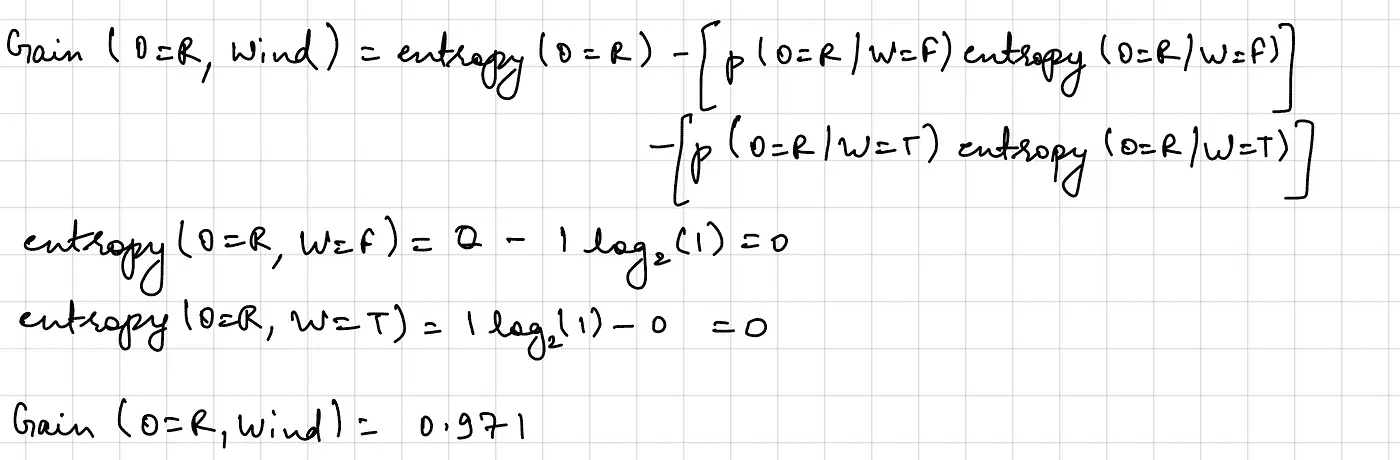 Gain (O=R, Wind) = entropy (O=R) - [p (O=R/W=F) entropy (O=R/W=F)]
-[p (O=R/W=T) entropy (O=R/W=T)]
entropy (O=R, W=F) = 0 - 1 log₂(1) = 0
entropy (O=R, W=T) = 1 log₂(1) - 0 = 0
Gain (O=R, Wind) = 0.971